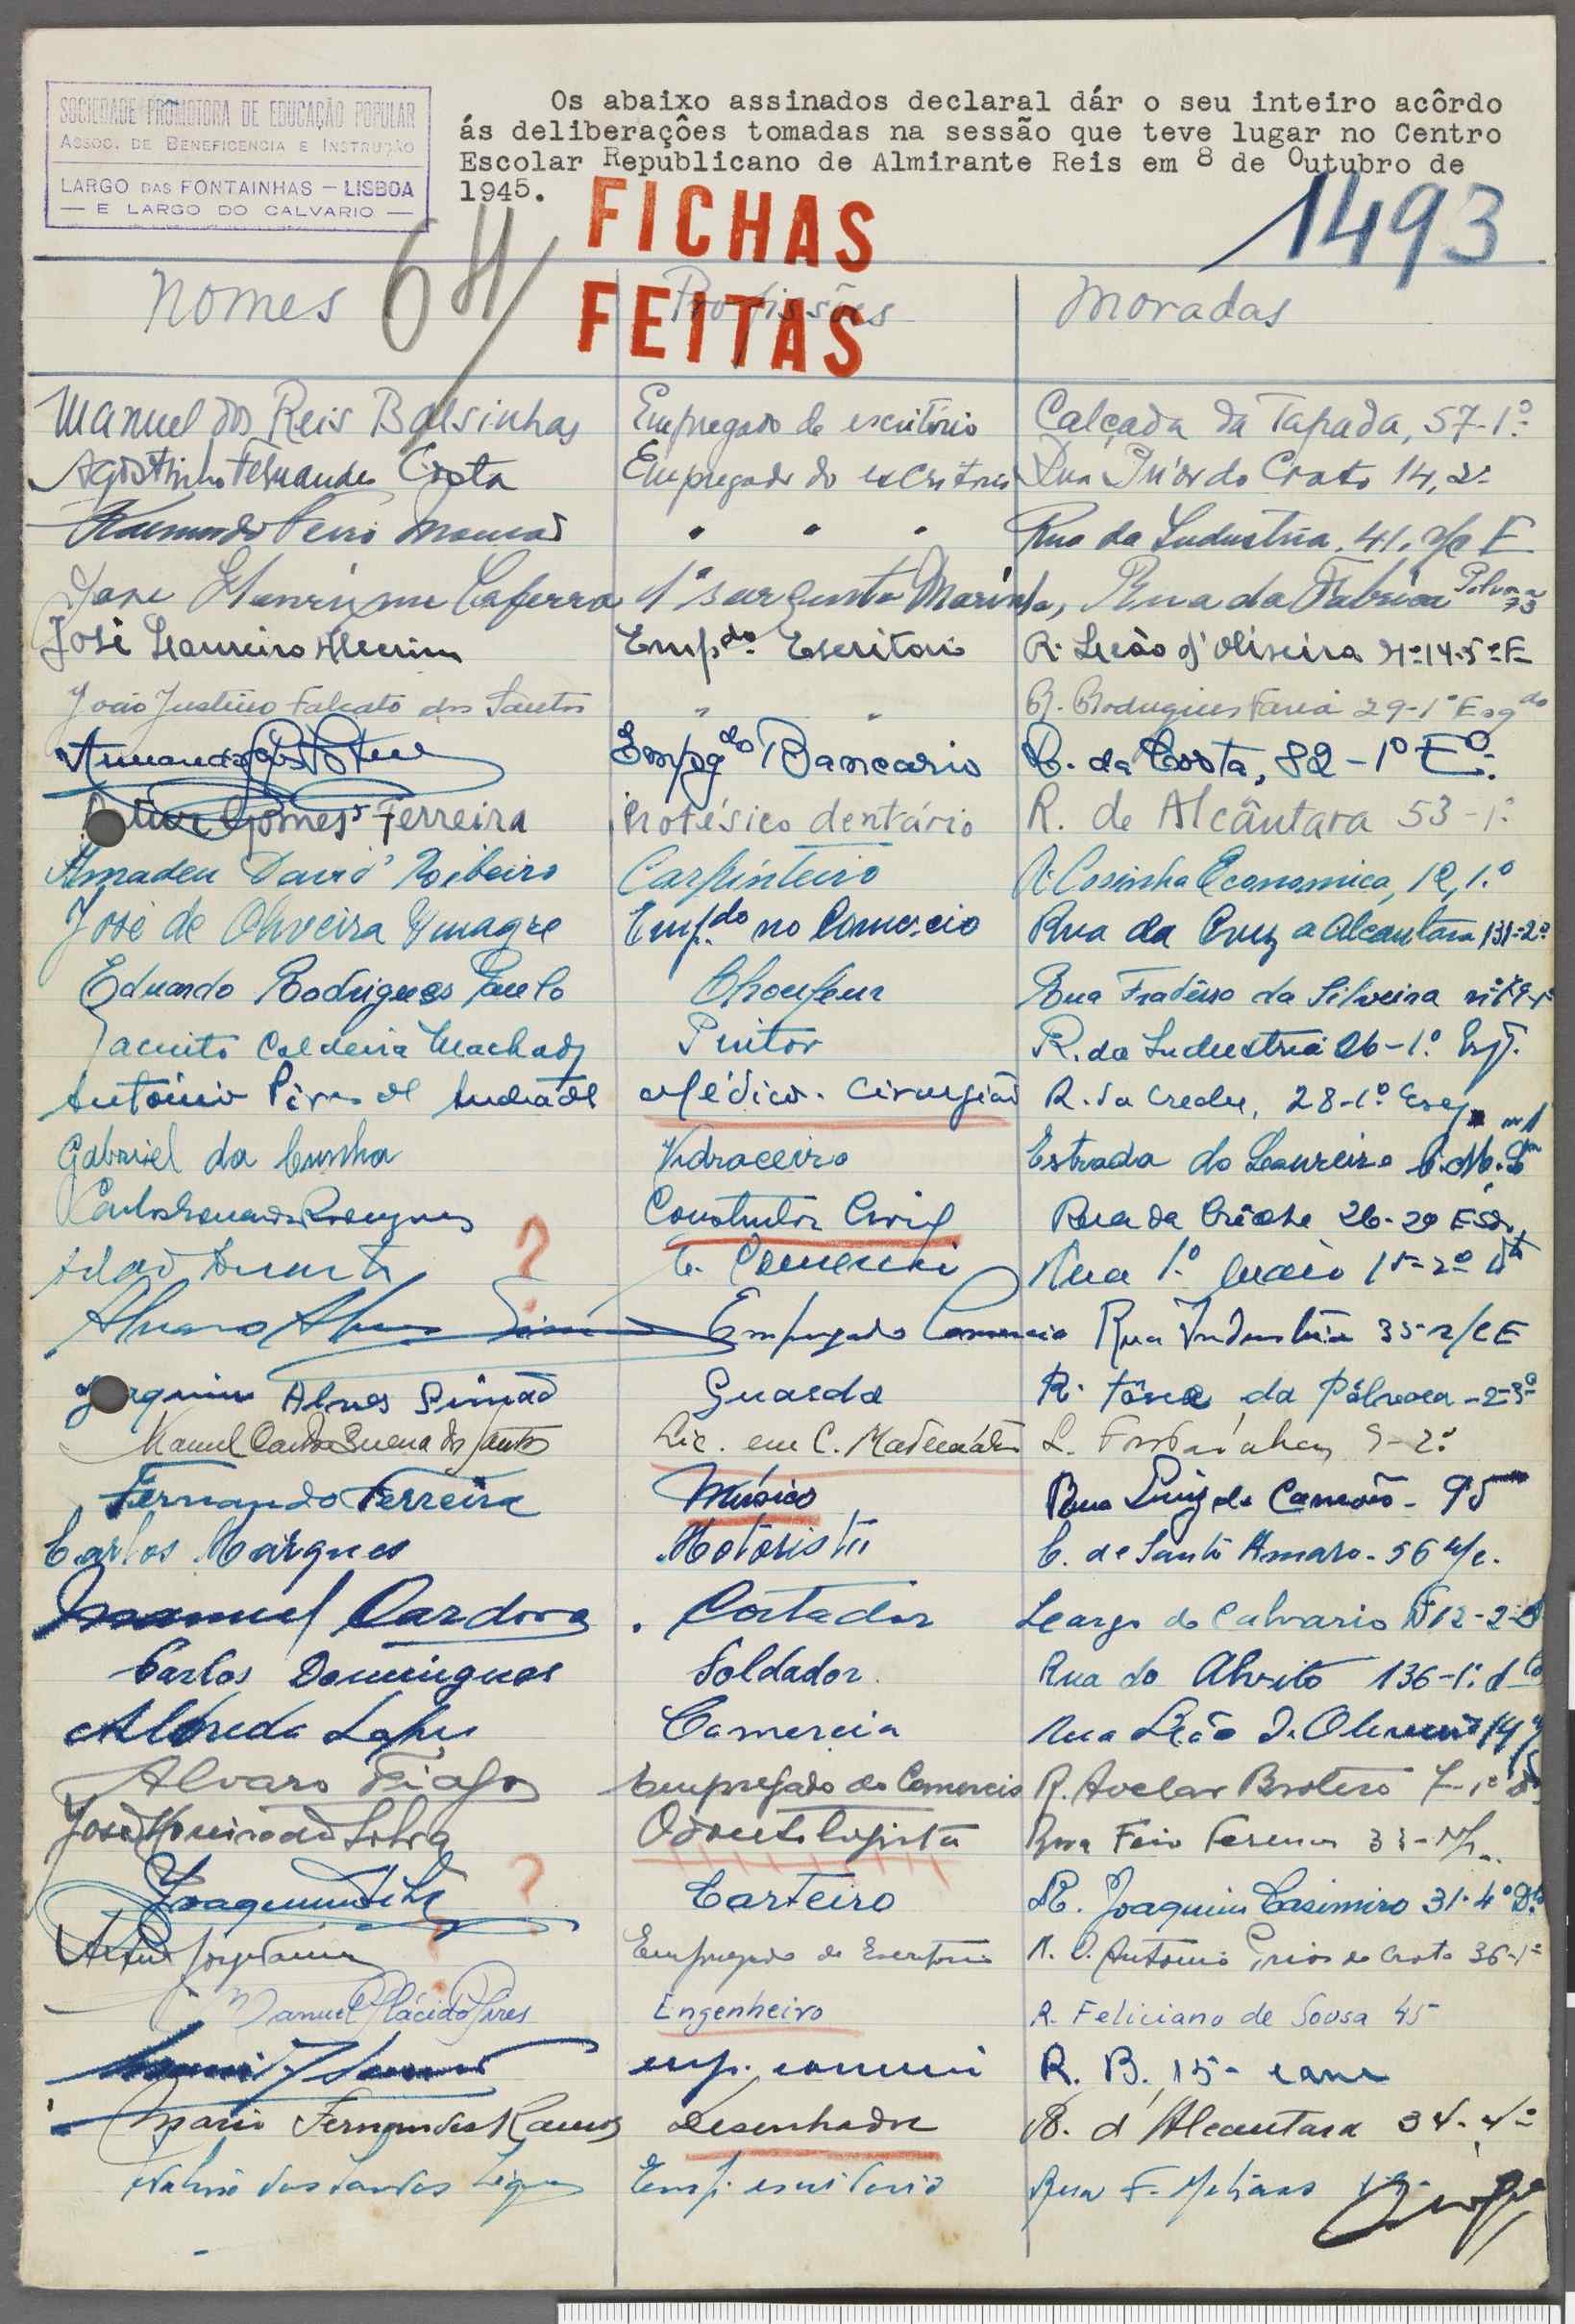 SOCIEDADE PROMOTORA DE EDUCAÇÃO POPULAR
ASSOC. DE BENEFICENCIA E INSTRUÇÃO
LARGO DAS FONTAINHAS — LISBOA
— E LARGO DO CALVARIO —
Os abaixo assinados declaral dár o seu inteiro acôrdo
ás deliberações tomadas na sessão que teve lugar no Centro
Escolar Republicano de Almirante Reis em 8 de Outubro de
1945.
FICHAS
FEITAS
64
1493
Nomes Profissões Moradas
Manuel dos Reis Balsinhas Empregado de escritório Calçada da Tapada, 57-1º
Agostinho Fernandes Costa Empregado de escritório Rua Prior do Crato 14, 2º
Raimundo " " " Rua da Industria, 41, r/c E
Henrique 1º sargento Marinha, Rua da Fabrica Polvora 73
José Loureiro Empdo. Escritorio R. Leão d'Oliveira nº 14-5º E
João Justino Falcato dos Santos " " R. Rodrigues Faria 29-1º Esqdo
Armando Empgdo Bancario R. da Costa, 82-1º Eº.
Gomes Ferreira Protésico dentário R. de Alcântara 53-1º
Amadeu David Ribeiro Carpinteiro R. Cosinha Economica, 12, 1.º
José de Oliveira Vinagre Emp.do no Comercio Rua da Cruz a Alcantara 131-2º
Eduardo Rodrigues Paulo Choufeur Rua Fradesso da Silveira
Jacinto Caldeira Machado Pintor R. da Industria 26-1.º Esq.
António Pires de Andrade Médico. Cirurgião R. da Creche, 28-1.º Esq.
Gabriel da Cunha Vidraceiro Estrada do Loureiro
Carlos Rodrigues Construtor Civil Rua da Créche 26-2º Esq.
Duarte ? Rua 1.º Maio 15-2º Dt
Alvaro Alves Empregado Comercio Rua Industria 35 r/c E
Joaquim Alves Simão Guarda R. da Pólvora-2-3º
Manuel dos Santos Lic. em C. Matemáticas L. Fontainhas 9-2.º
Fernando Ferreira Músico Rua Luiz de Camões-95
Carlos Marques Motorista C. de Santo Amaro-56 r/c.
Manuel Cardoso Cortador Largo do Calvario 12-2
Carlos Domingues Soldador Rua do Alvito 136-1.º d
Alfredo Comercio Rua Leão de Oliveira 14
Alvaro Tiago Empregado do Comercio R. Avelar Brotero 7-1º
José da Silva Odontologista Rua Feio Terenas 33-
Joaquim ? Carteiro R. Joaquim Casimiro 31-4º D.to
Artur Jorge Empregado de Escritorio R. D. Antonio Prior do Crato 36-1º
Manuel Plácido Pires Engenheiro R. Feliciano de Sousa 45
emp. R. B. 15-
Mario Fernandes Ramos Desenhador R. d'Alcantara 34-4º
dos Santos Emp. escritorio Rua F.